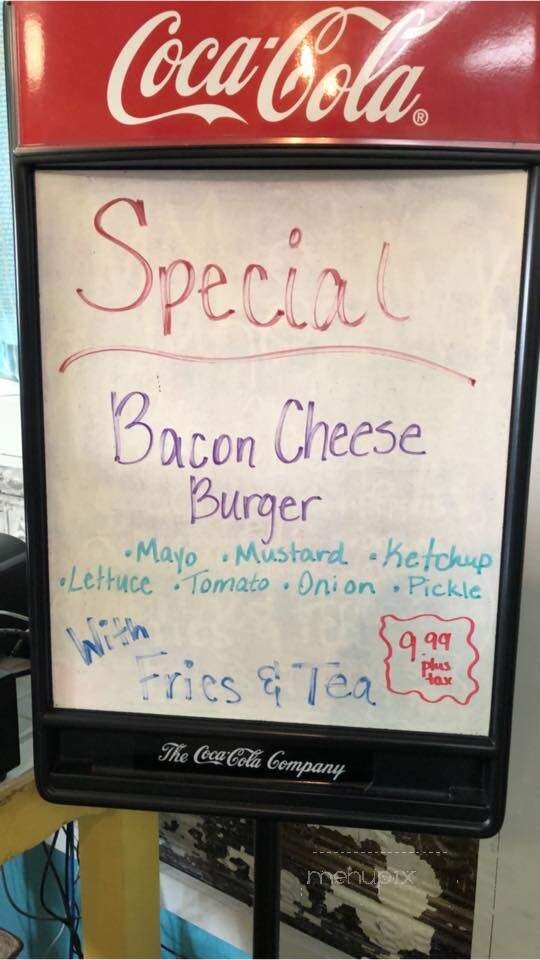 Coca-Cola®
Special
Bacon Cheese
Burger
• Mayo • Mustard • Ketchup
• Lettuce • Tomato • Onion • Pickle
With
Fries & Tea
9.99
plus
tax
The Coca-Cola Company
menupix